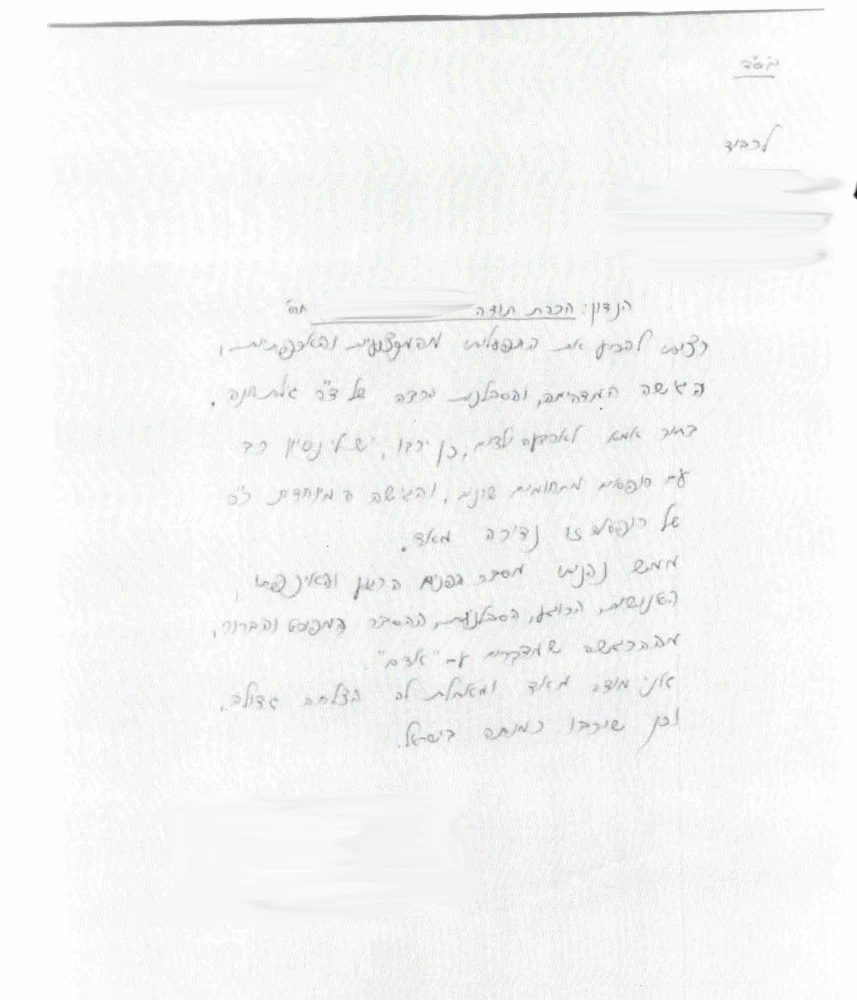 בס"ד
לכבוד
הנדון: הכרת תודה
רציתי להביע את התפעלותי מהמקצועיות והאכפתיות,
הגישה המדהימה, והסבלנות הרבה של ד"ר
בתור אמא לארבעה ילדים, כן ירבו, יש לי נסיון רב
עם רופאים מתחומים שונים, והגישה המיוחדת
של זו נדירה מאד.
ממש נהניתי מסבר הפנים
האנושיות, הרוגע, הסבלנות, ההסבר המפורט והברור,
מההרגשה שמדברים עם "אדם".
אני מודה מאוד ומאחלת לה הצלחה גדולה,
וכן שירבו כמותה בישראל.